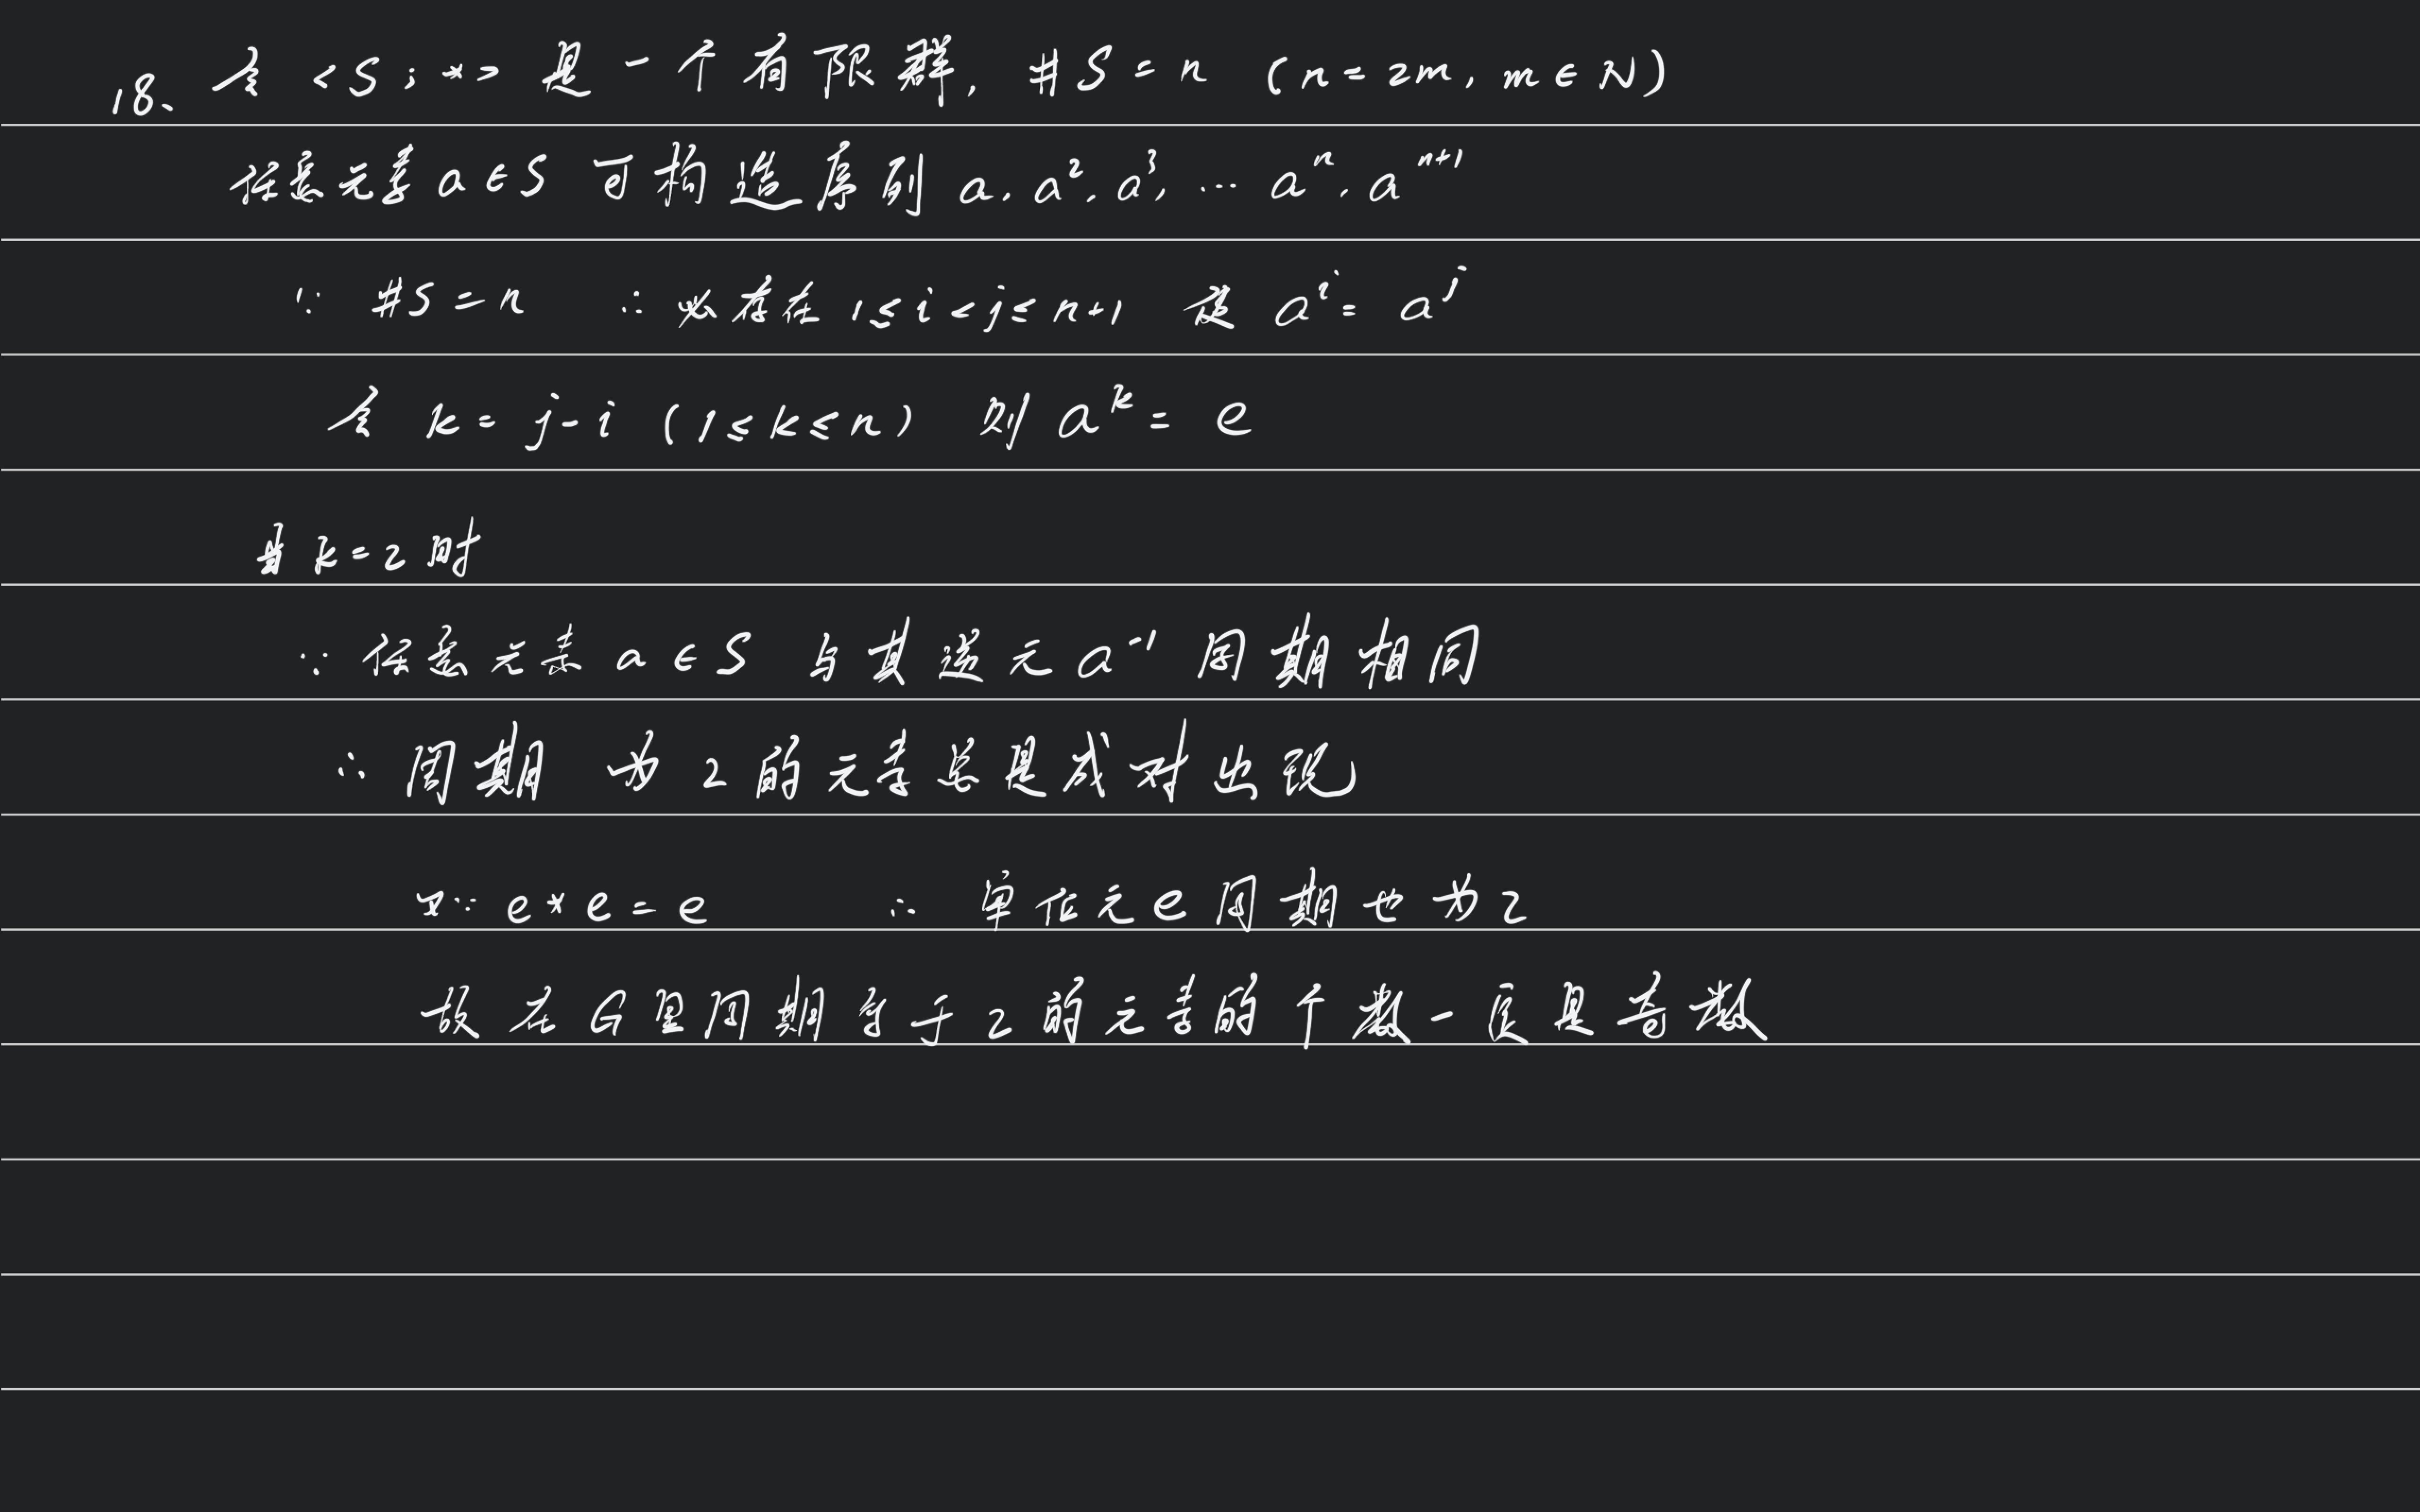 18、令 <S; *> 是一个有限群, #S = n (n = 2m, m ∈ N)
任意元素 a ∈ S 可构造序列 a, a², a³, … aⁿ, aⁿ⁺¹
∵ #S = n ∴ 必存在 1 ≤ i < j ≤ n+1 使 aⁱ = aʲ
令 k = j - i (1 ≤ k ≤ n) 则 aᵏ = e
当 k = 2 时
∵ 任意元素 a ∈ S 与其逆元 a⁻¹ 周期相同
∴ 周期为 2 的元素总是成对出现
又∵ e * e = e ∴ 单位元 e 周期也为 2
故在 G 里周期等于 2 的元素的个数一定是奇数